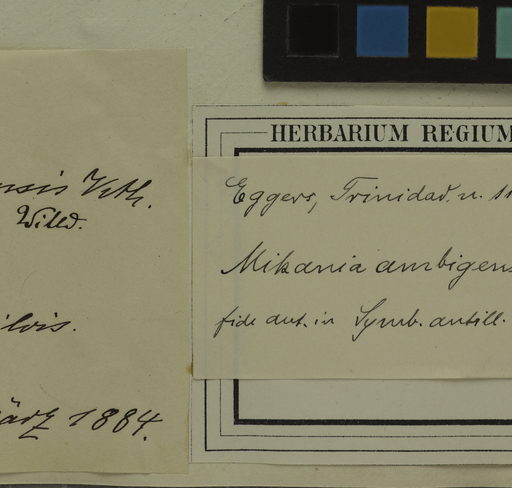 Vth.
Willd.
März 1884.
HERBARIUM REGIUM
Eggers, Trinidad. n.
Mikania ambigens
fide aut. in Symb. antill.